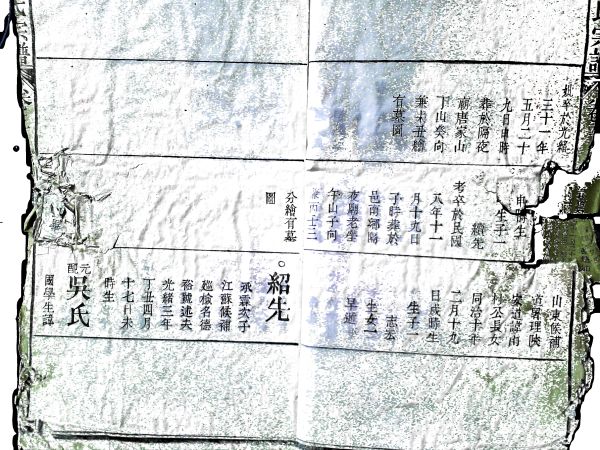 氏宗譜
卒於光緒
三十一年
五月二十
九日申時
葬於隔夜
廟唐家山
丁山癸向
兼未丑繪
有墓圖
申時生
生子一
續先
考卒於民國
八年十一
月十九日
子時葬於
邑南鄉隔
夜廟老塋
午山子向
兼四十三
分繪有墓
圖
山東候補
道署理陝
安道諱雨
村公長女
同治十年
二月十九
日戌時生
生子一
志宏
生女一
早逝
紹先
承霖次子
江蘇候補
巡檢名德
裕號述夫
光緒三年
丁丑四月
十七日未
時生
元配
吳氏
國學生諱